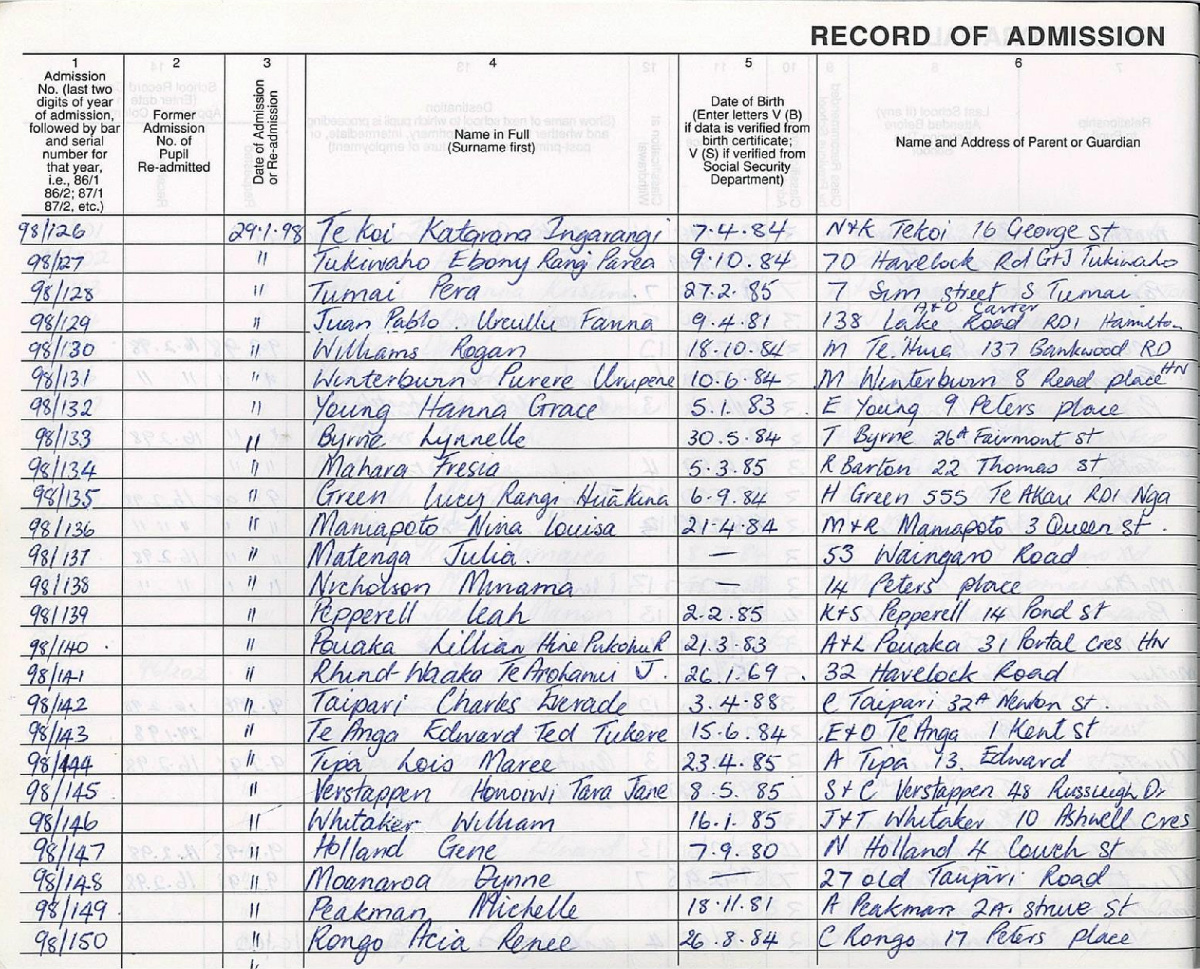 RECORD OF ADMISSION
1 2 3 4 5 6
Admission No. (last two digits of year of admission, followed by bar and serial number for that year, i.e., 86/1 86/2; 87/1 87/2, etc.)
Former Admission No. of Pupil Re-admitted
Date of Admission or Re-admission
Name in Full (Surname first)
Date of Birth (Enter letters V (B) if data is verified from birth certificate; V (S) if verified from Social Security Department)
Name and Address of Parent or Guardian
98/126 29.1.98 Te Koi Katarana Ingarangi 7.4.84 N+K Tekoi 16 George st
98/127 " Tukiwaho Ebony Rangi Parea 9.10.84 70 Havelock Rd G+J Tukiwaho
98/128 " Tumai Pera 27.2.85 7 Sim street S Tumai
A+D Carter
98/129 " Juan Pablo . Urcullu Fanna 9.4.81 138 Lake Road RD1 Hamilton
98/130 " Williams Rogan 18.10.84 M Te.Hua 137 Bankwood RD
98/131 " Winterburn Purere Urupene 10.6.84 M Winterburn 8 Read place HN
98/132 " Young Hanna Grace 5.1.83 E Young 9 Peters place
98/133 " Byrne Lynnelle 30.5.84 T Byrne 26A Fairmont st
98/134 " Mahara Fresia 5.3.85 R Barton 22 Thomas st
98/135 " Green Lucy Rangi Huākina 6.9.84 H Green 555 Te Akau RD1 Nga
98/136 " Maniapoto Nina Louisa 21.4.84 M+R Maniapoto 3 Queen st.
98/137 " Matenga Julia. — 53 Waingaro Road
98/138 " Nicholson Minama — 14 Peters place
98/139 " Pepperell Leah 2.2.85 K+S Pepperell 14 Pond st
98/140 " Pouaka Lillian Hine Pukohu R 21.3.83 A+L Pouaka 31 Portal Cres HN
98/141 " Rhind-Waaka Te Arohanui J. 26.1.69 32 Havelock Road
98/142 " Taipari Charles Everade 3.4.88 C Taipari 32A Newton st.
98/143 " Te Anga Edward Ted Tukere 15.6.84 E+O Te Anga 1 Kent st
98/144 " Tipa Lois Maree 23.4.85 A Tipa 13. Edward
98/145 " Verstappen Honoiwi Tara Jane 8.5.85 S+C Verstappen 48 Russleigh Dr
98/146 " Whitaker William 16.1.85 J+T Whitaker 10 Ashwell Cres
98/147 " Holland Gene 7.9.80 N Holland 4 Couch st
98/148 " Moanaroa Dynne — 27 old Taupiri Road
98/149 " Peakman Michelle 18.11.81 A Peakman 2A. struve st
98/150 " Rongo Acia Renee 26.8.84 C Rongo 17 Peters place